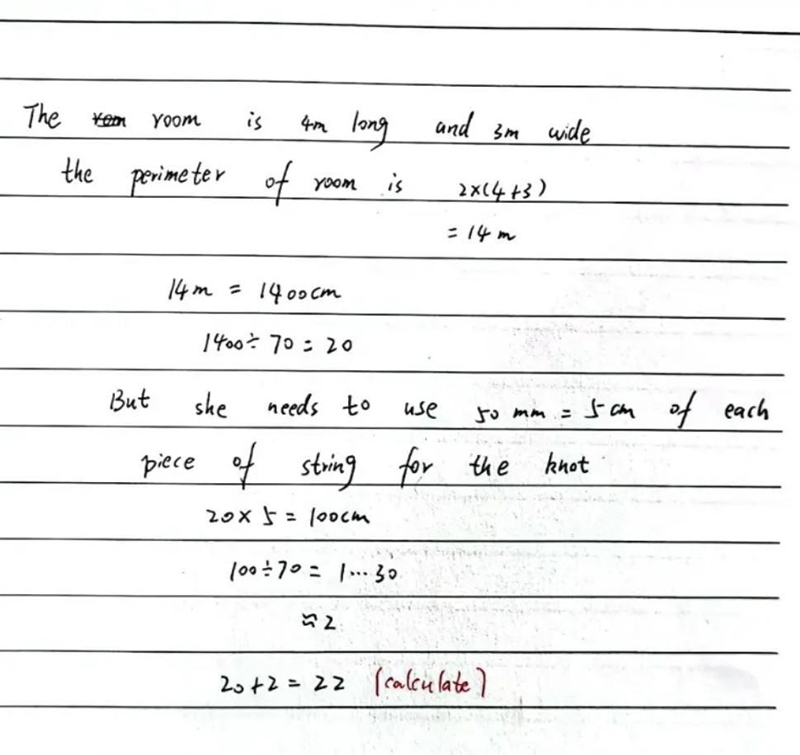 The room is 4m long and 3m wide
the perimeter of room is 2×(4+3)
= 14 m
14 m = 1400cm
1400÷ 70 = 20
But she needs to use 50 mm = 5 cm of each
piece of string for the knot
20× 5 = 100cm
100÷70 = 1...30
≈2
20+2 = 22 (calculate)